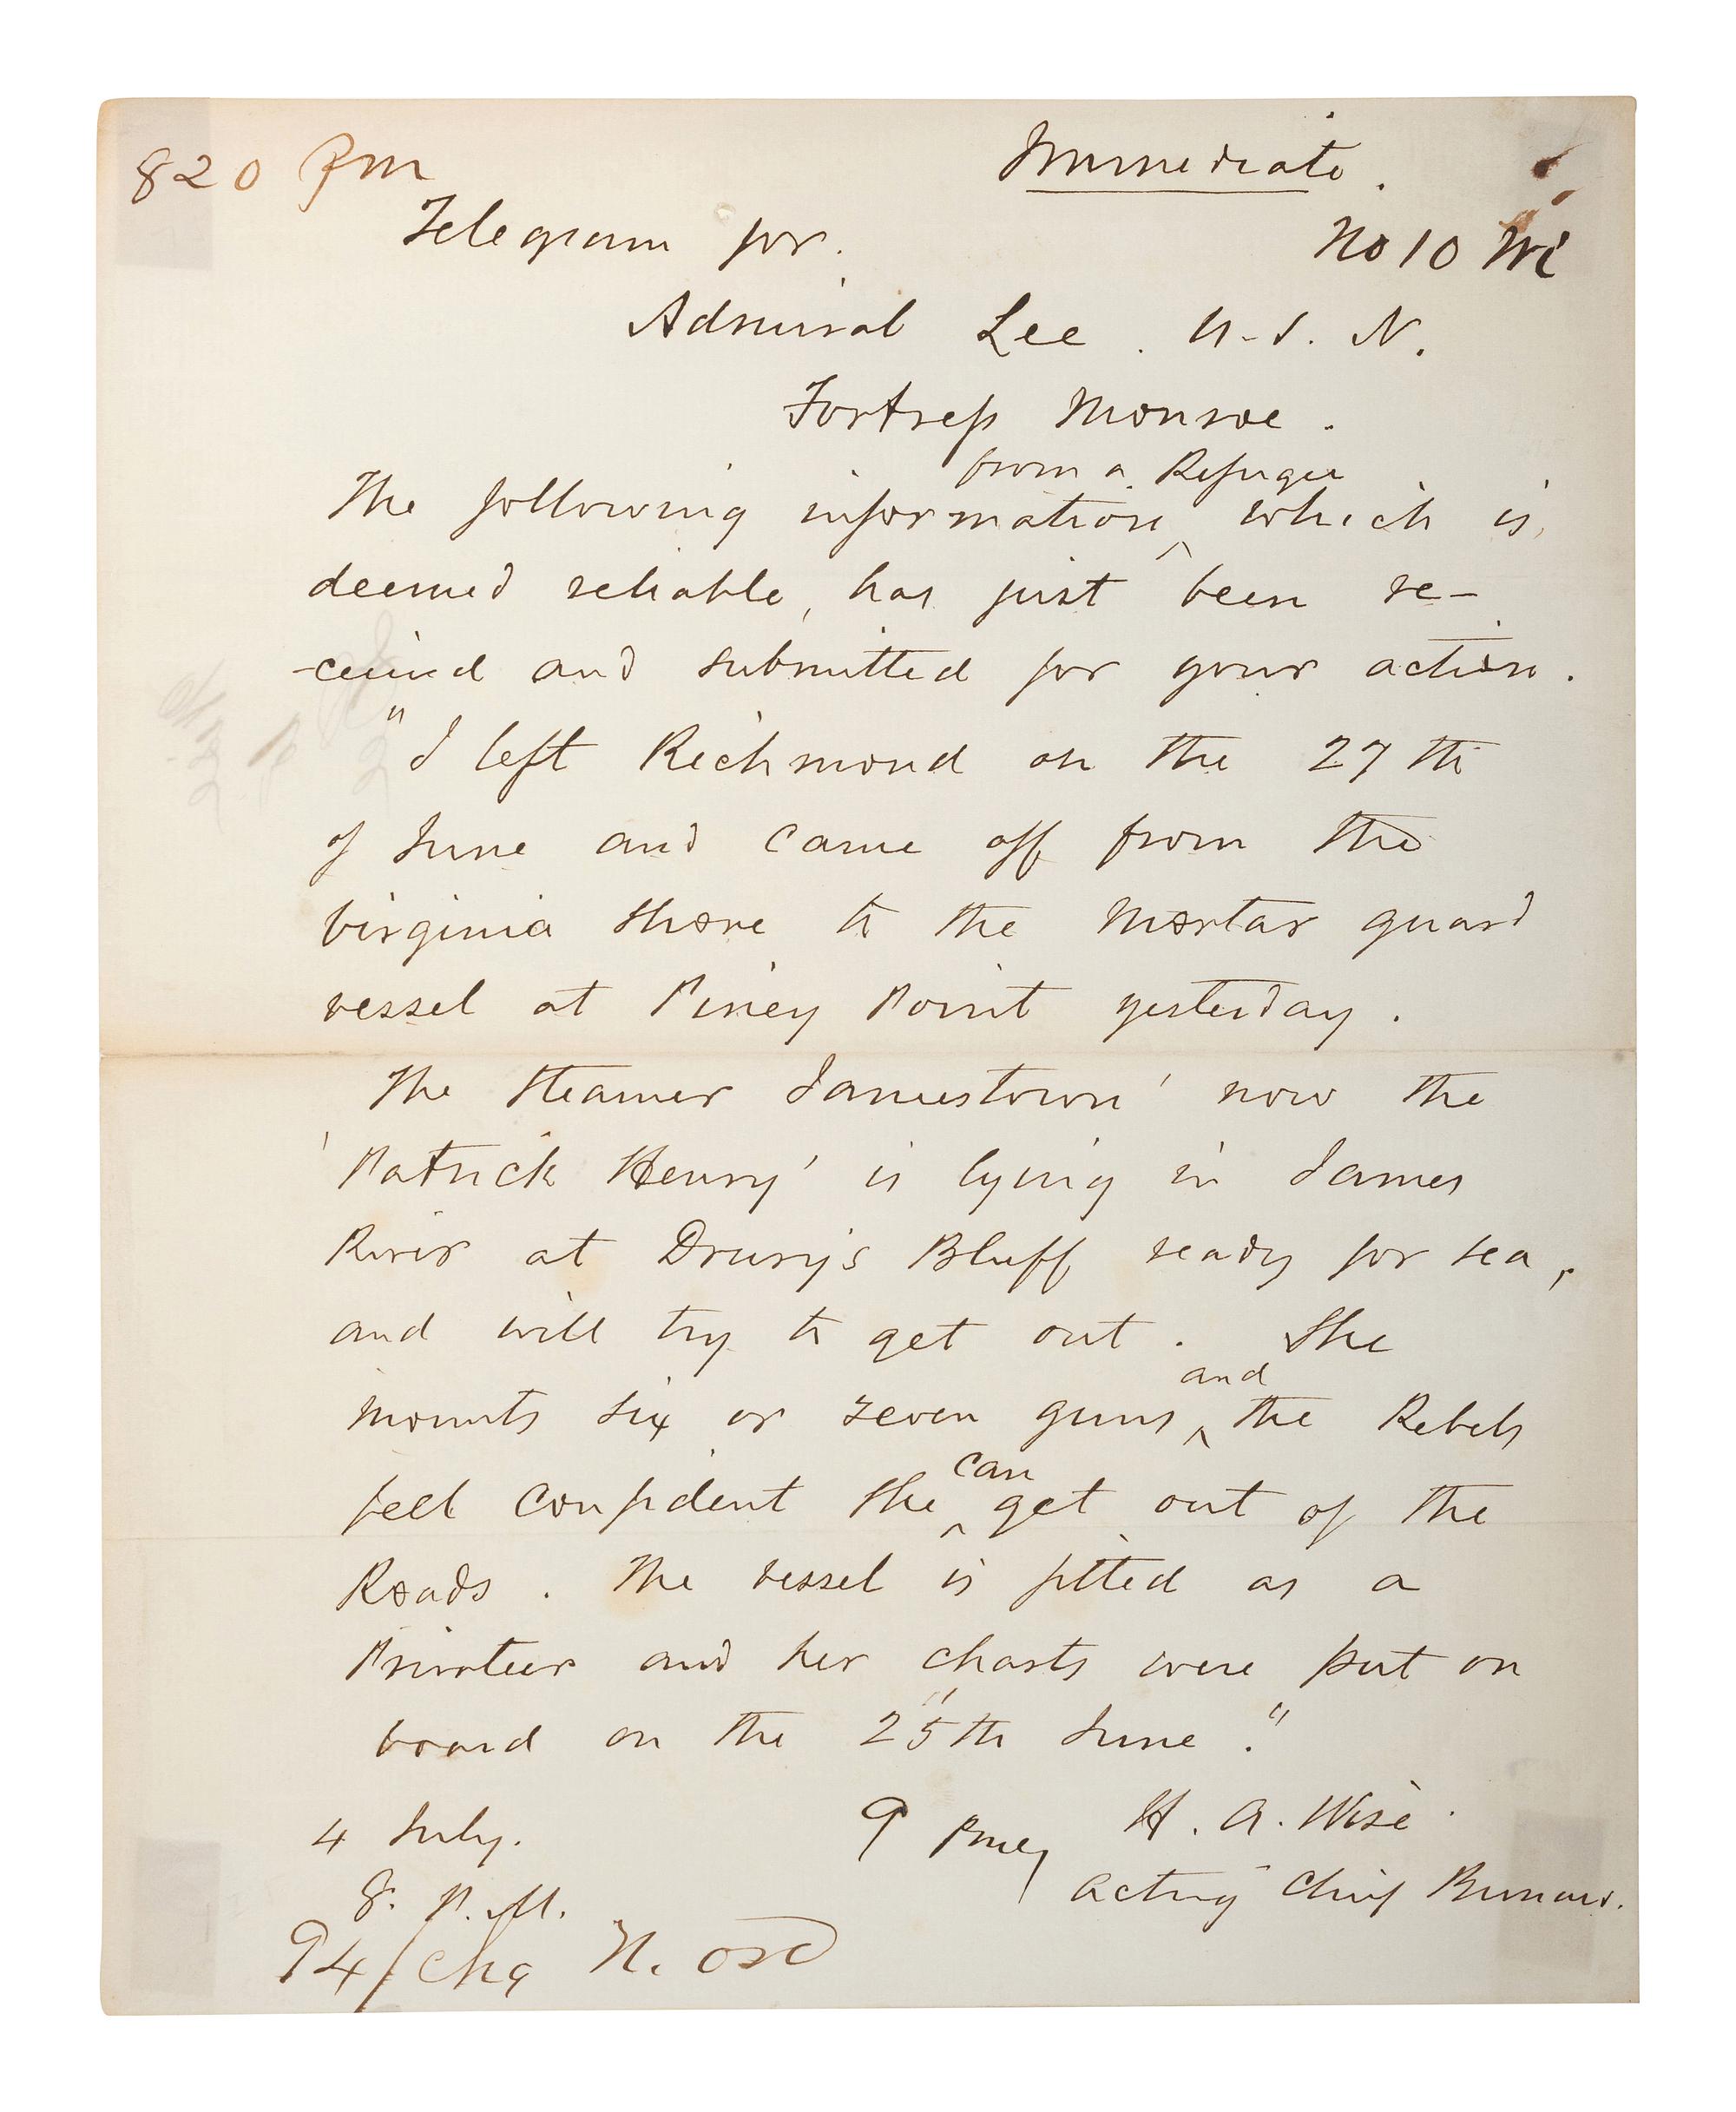 820 Pm
Immediate.
Telegram for.
No 10 Wi
Admiral Lee. U.S. N.
Fortress Monroe.
from a Refugee
The following information ^ which is
deemed reliable, has just been re-
-ceived and submitted for your action.
"I left Richmond on the 27th
of June and came off from the
Virginia shore to the Mortar guard
vessel at Piney Point yesterday.
The steamer Jamestown' now the
'Patrick Henry' is lying in James
River at Drury's Bluff ready for sea,
and will try to get out. She
and
mounts six or seven guns ^ the Rebels
can
feel confident she ^ get out of the
Roads. The vessel is fitted as a
Privateer and her charts were put on
board on the 25th June."
4 July.
8. P.M.
H. A. Wise.
Acting Chief Bureau.
94/Chg N. Ord